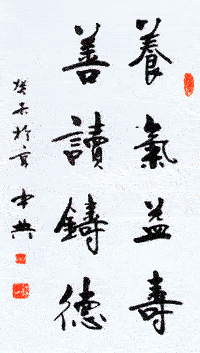 養氣益壽
善讀鑄德
癸未於京 中典